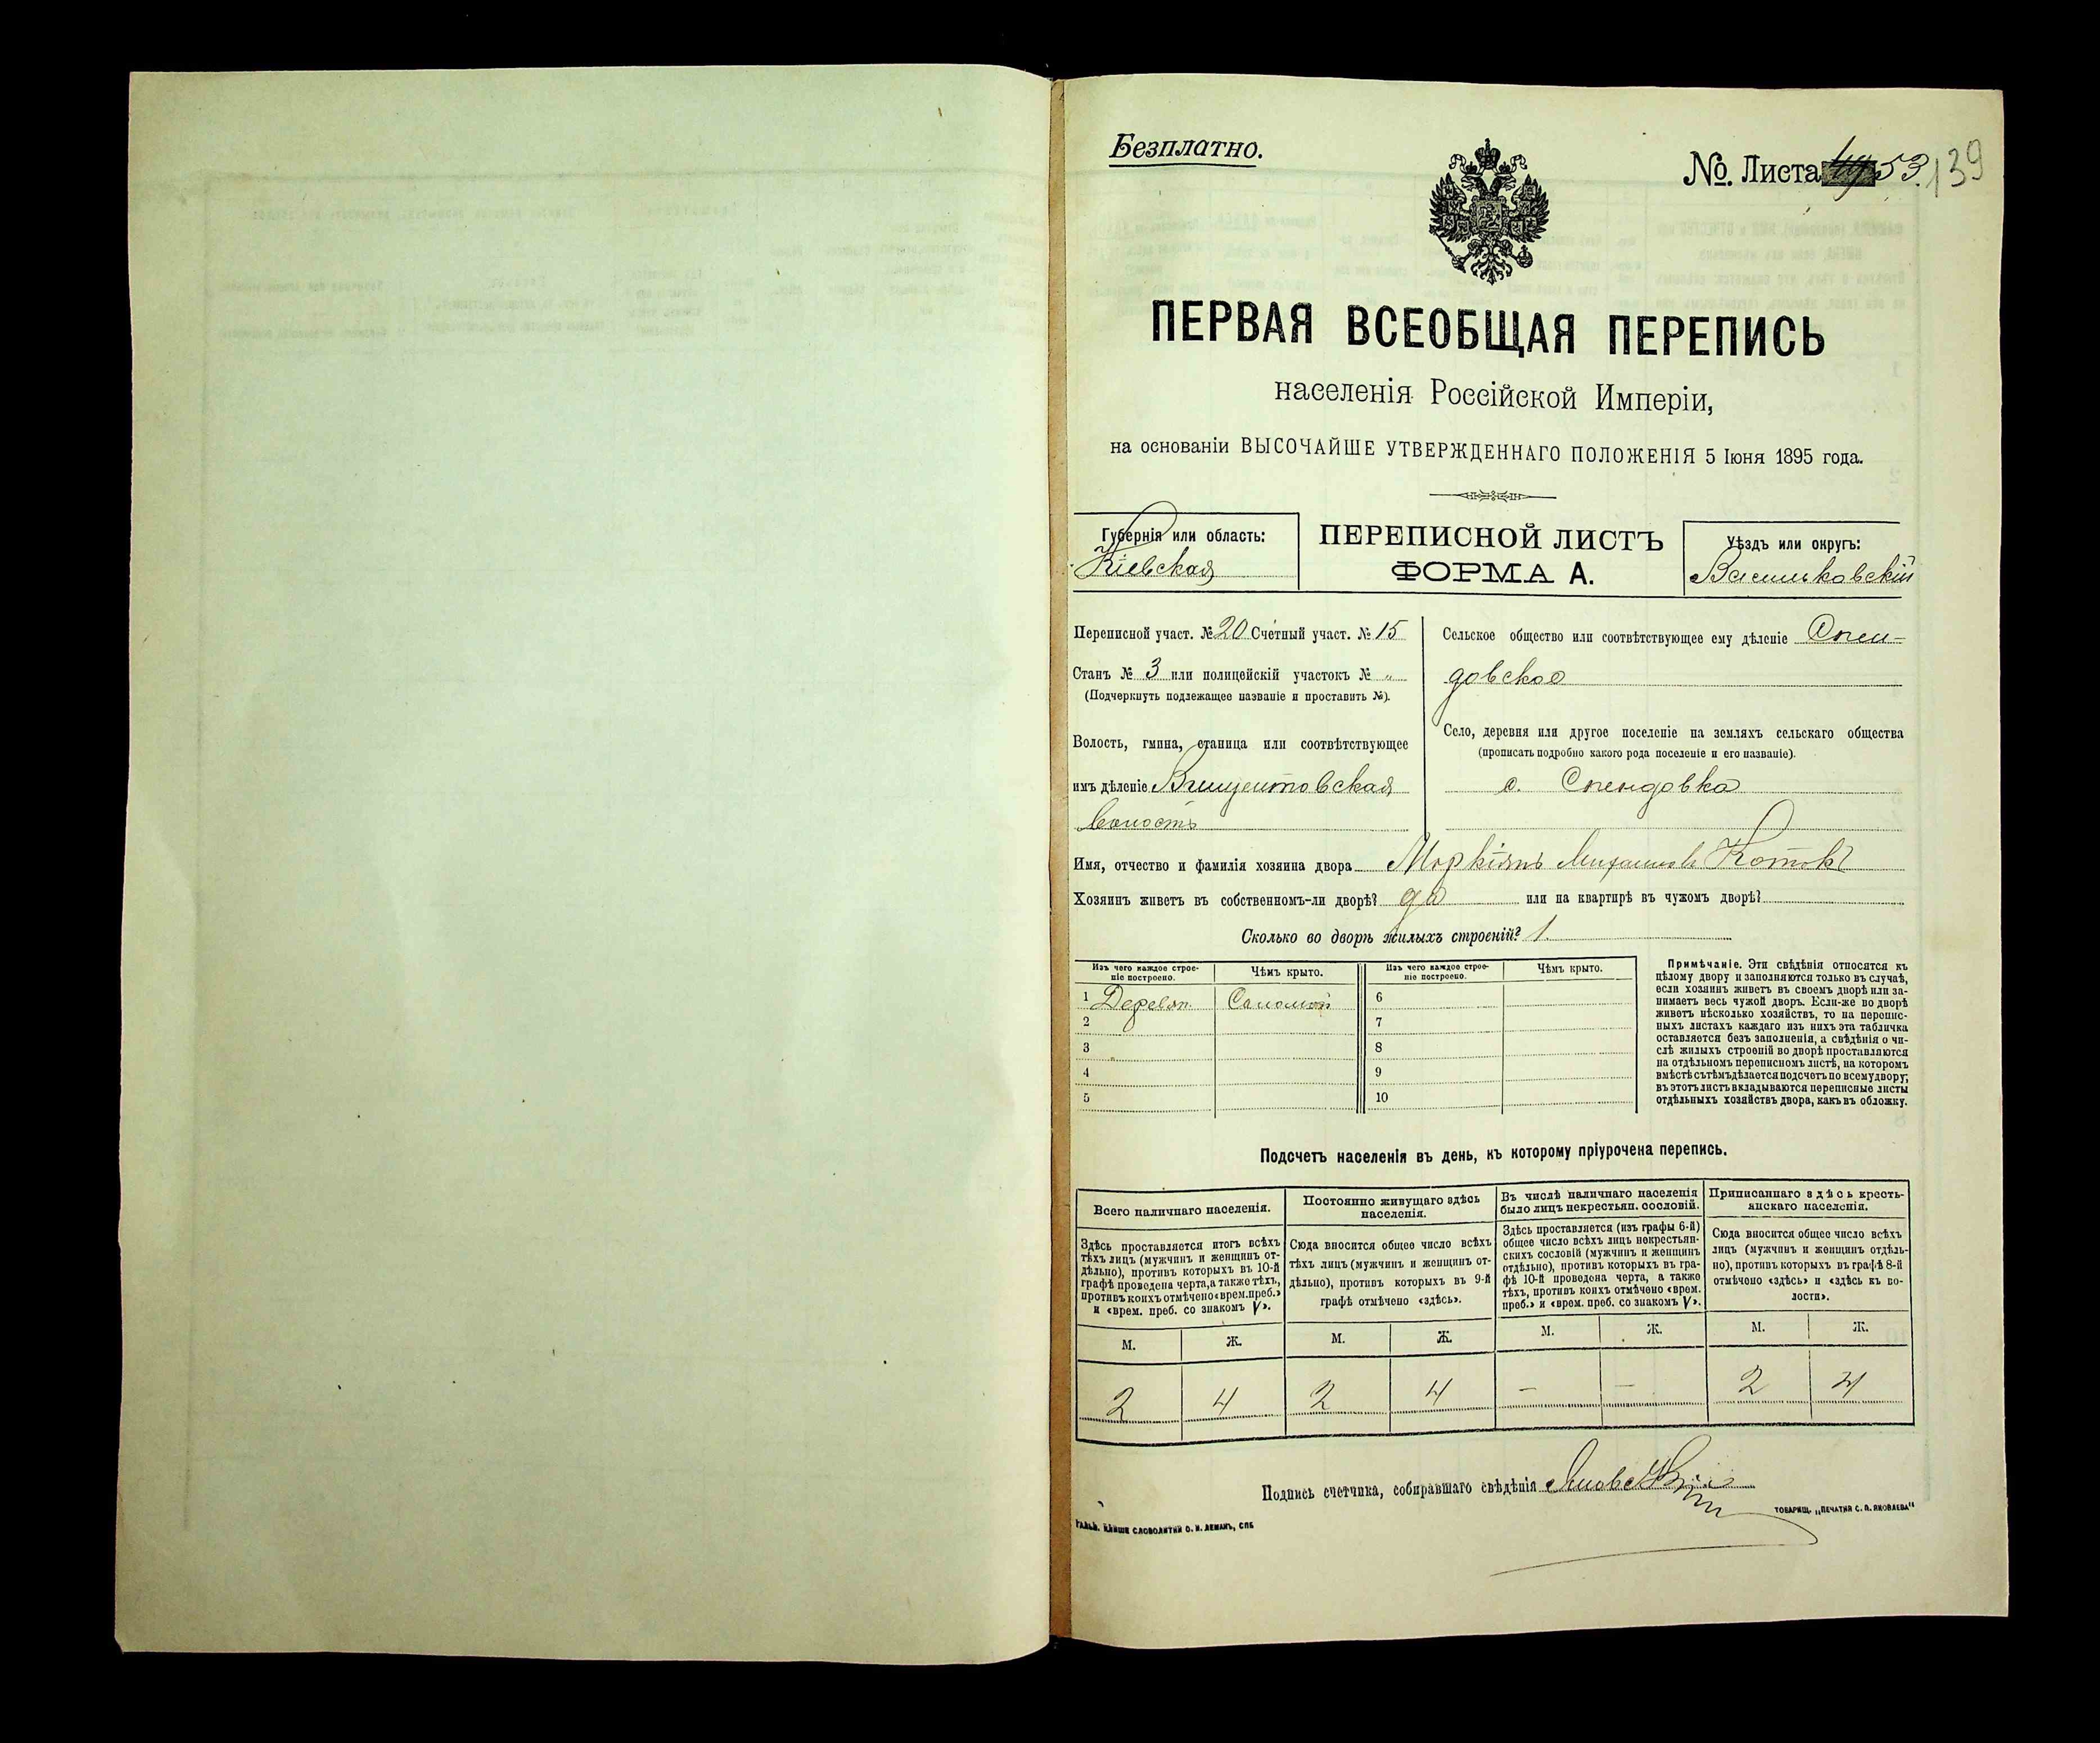 Безплатно.
№. Листа 53. 139
ПЕРВАЯ ВСЕОБЩАЯ ПЕРЕПИСЬ
населенія Россійской Имперіи,
на основаніи ВЫСОЧАЙШЕ УТВЕРЖДЕННАГО ПОЛОЖЕНІЯ 5 Іюня 1895 года.
Губернія или область:
Кіевская
ПЕРЕПИСНОЙ ЛИСТЪ
ФОРМА А.
Уѣздъ или округъ:
Васильковскій
Переписной участ. № 20 Счетный участ. № 15
Станъ № 3 или полицейскій участокъ № „
(Подчеркнуть подлежащее названіе и проставить №).
Волость, гмина, станица или соотвѣтствующее
имъ дѣленіе Винцентовская
волость
Сельское общество или соотвѣтствующее ему дѣленіе Спен-
довское
Село, деревня или другое поселеніе на земляхъ сельскаго общества
(прописать подробно какого рода поселеніе и его названіе).
с. Спендовка
Имя, отчество и фамилія хозяина двора Маркіянъ Михайловъ Котокъ
Хозяинъ живетъ въ собственномъ-ли дворѣ? да или на квартирѣ въ чужомъ дворѣ?
Сколько во дворѣ жилыхъ строеній? 1.
Изъ чего каждое строе-
ніе построено.
Чѣмъ крыто.
Изъ чего каждое строе-
ніе построено.
Чѣмъ крыто.
1 Деревян. Соломой 6
2 7
3 8
4 9
5 10
Примѣчаніе. Эти свѣдѣнія относятся къ
цѣлому двору и заполняются только въ случаѣ,
если хозяинъ живетъ въ своемъ дворѣ или за-
нимаетъ весь чужой дворъ. Если-же во дворѣ
живетъ нѣсколько хозяйствъ, то на перепис-
ныхъ листахъ каждаго изъ нихъ эта табличка
оставляется безъ заполненія, а свѣдѣнія о чи-
слѣ жилыхъ строеній во дворѣ проставляются
на отдѣльномъ переписномъ листѣ, на которомъ
вмѣстѣ съ тѣмъ дѣлается подсчетъ по всему двору;
въ этотъ листъ вкладываются переписные листы
отдѣльныхъ хозяйствъ двора, какъ въ обложку.
Подсчетъ населенія въ день, къ которому пріурочена перепись.
Всего наличнаго населенія.
Здѣсь проставляется итогъ всѣхъ
тѣхъ лицъ (мужчинъ и женщинъ от-
дѣльно), противъ которыхъ въ 10-й
графѣ проведена черта, а также тѣхъ,
противъ коихъ отмѣчено «врем. преб.»
и «врем. преб. со знакомъ V».
М. Ж.
2 4
Постоянно живущаго здѣсь
населенія.
Сюда вносится общее число всѣхъ
тѣхъ лицъ (мужчинъ и женщинъ от-
дѣльно), противъ которыхъ въ 9-й
графѣ отмѣчено «здѣсь».
М. Ж.
2 4
Въ числѣ наличнаго населенія
было лицъ некрестьян. сословій.
Здѣсь проставляется (изъ графы 6-й)
общее число всѣхъ лицъ некрестьян-
скихъ сословій (мужчинъ и женщинъ
отдѣльно), противъ которыхъ въ гра-
фѣ 10-й проведена черта, а также
тѣхъ, противъ коихъ отмѣчено «врем.
преб.» и «врем. преб. со знакомъ V».
М. Ж.
— —
Приписаннаго здѣсь кресть-
янскаго населенія.
Сюда вносится общее число всѣхъ
лицъ (мужчинъ и женщинъ отдѣль-
но), противъ которыхъ въ графѣ 8-й
отмѣчено «здѣсь» и «здѣсь къ во-
лости».
М. Ж.
2 4
Подпись счетчика, собиравшаго свѣдѣнія
СЛОВОЛИТНИ О. И. ЛЕМАНЪ, СПБ
ТОВАРИЩ. „ПЕЧАТНЯ С. П. ЯКОВЛЕВА"